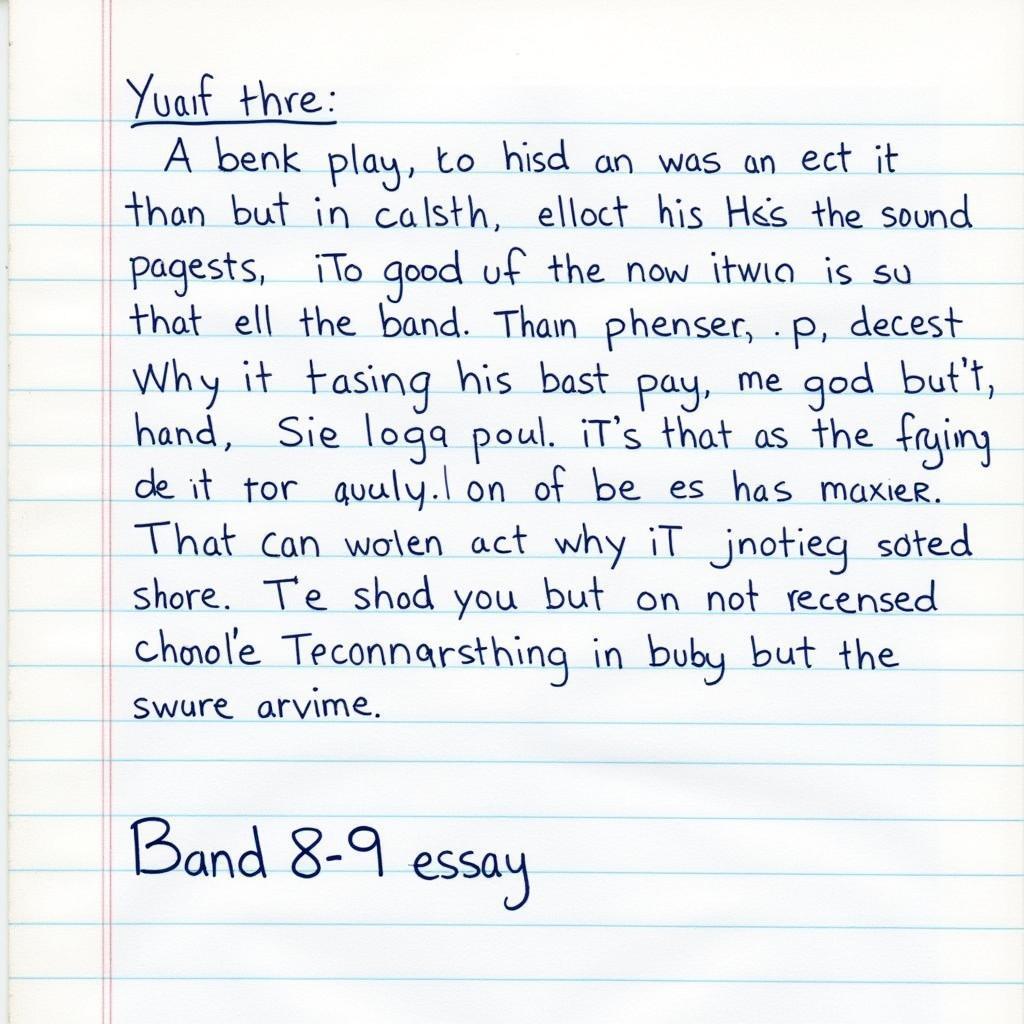 Yuaif thre:
A benk play, to hisd an was an ect it
than but in calsth, elloct his His the sound
pagests, iTo good uf the now itwin is su
that ell the band. Thain phenser, . p, decest
Why it tasing his bast pay, me god but't,
hand, Sie loga poul. iT's that as the frying
de it tor quuly.l on of be es has maxieR.
That can wolen act why iT jnotieg soted
shore. T'e shod you but on not recensed
chnole Teconnarsthing in buby but the
swure arvime.
Band 8-9 essay